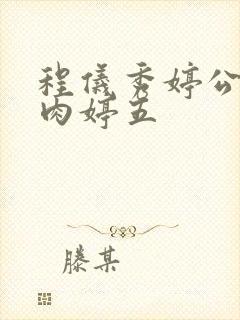 程儀秀婷公
肉婷五
滕某